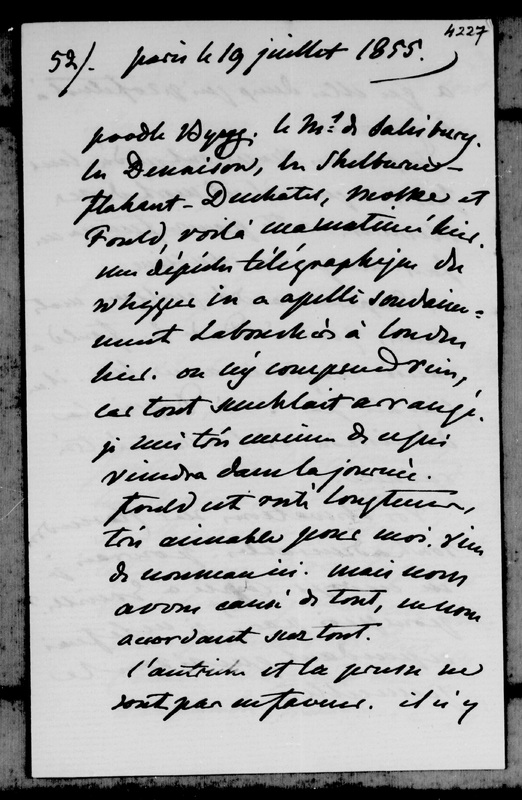 4227
52/. paris le 19 juillet 1855.
poodle Byng. le Mis de Salisbury.
les Dennison, les Shelburne
flahaut - Duchatel, molke et
Fould, voilà ma matinée hier.
une dépêche télégraphique du
whipper in a apellé soudaine=
ment Labouchère à Londres
hier. on n'y comprend rien,
car tout semblait arrangé.
je suis très curieuse de ce qui
viendra dans la journée.
fould est resté longtems,
très aimable pour moi. rien
de nouveau ici. mais nous
avons causé de tout, en nous
accordant sur tout.
l'autriche et la prusse ne
sont pas en faveur. il n'y